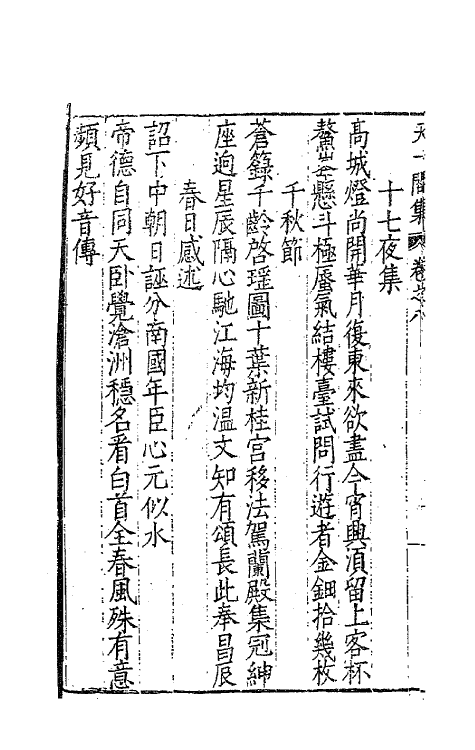 天一閣集 卷之八
十七夜集
高城燈尚開華月復東來欲盡今宵興須留上客杯
鰲山懸斗極蜃氣結樓臺試問行遊者金鈿拾幾枚
千秋節
蒼籙千齡啓瑤圖十葉新桂宮移法駕蘭殿集冠紳
座逈星辰隔心馳江海均溫文知有頌長此奉昌辰
春日感述
詔下中朝日誣分南國年臣心元似水
帝德自同天卧覺滄洲穩名看白首全春風殊有意
頻見好音傳